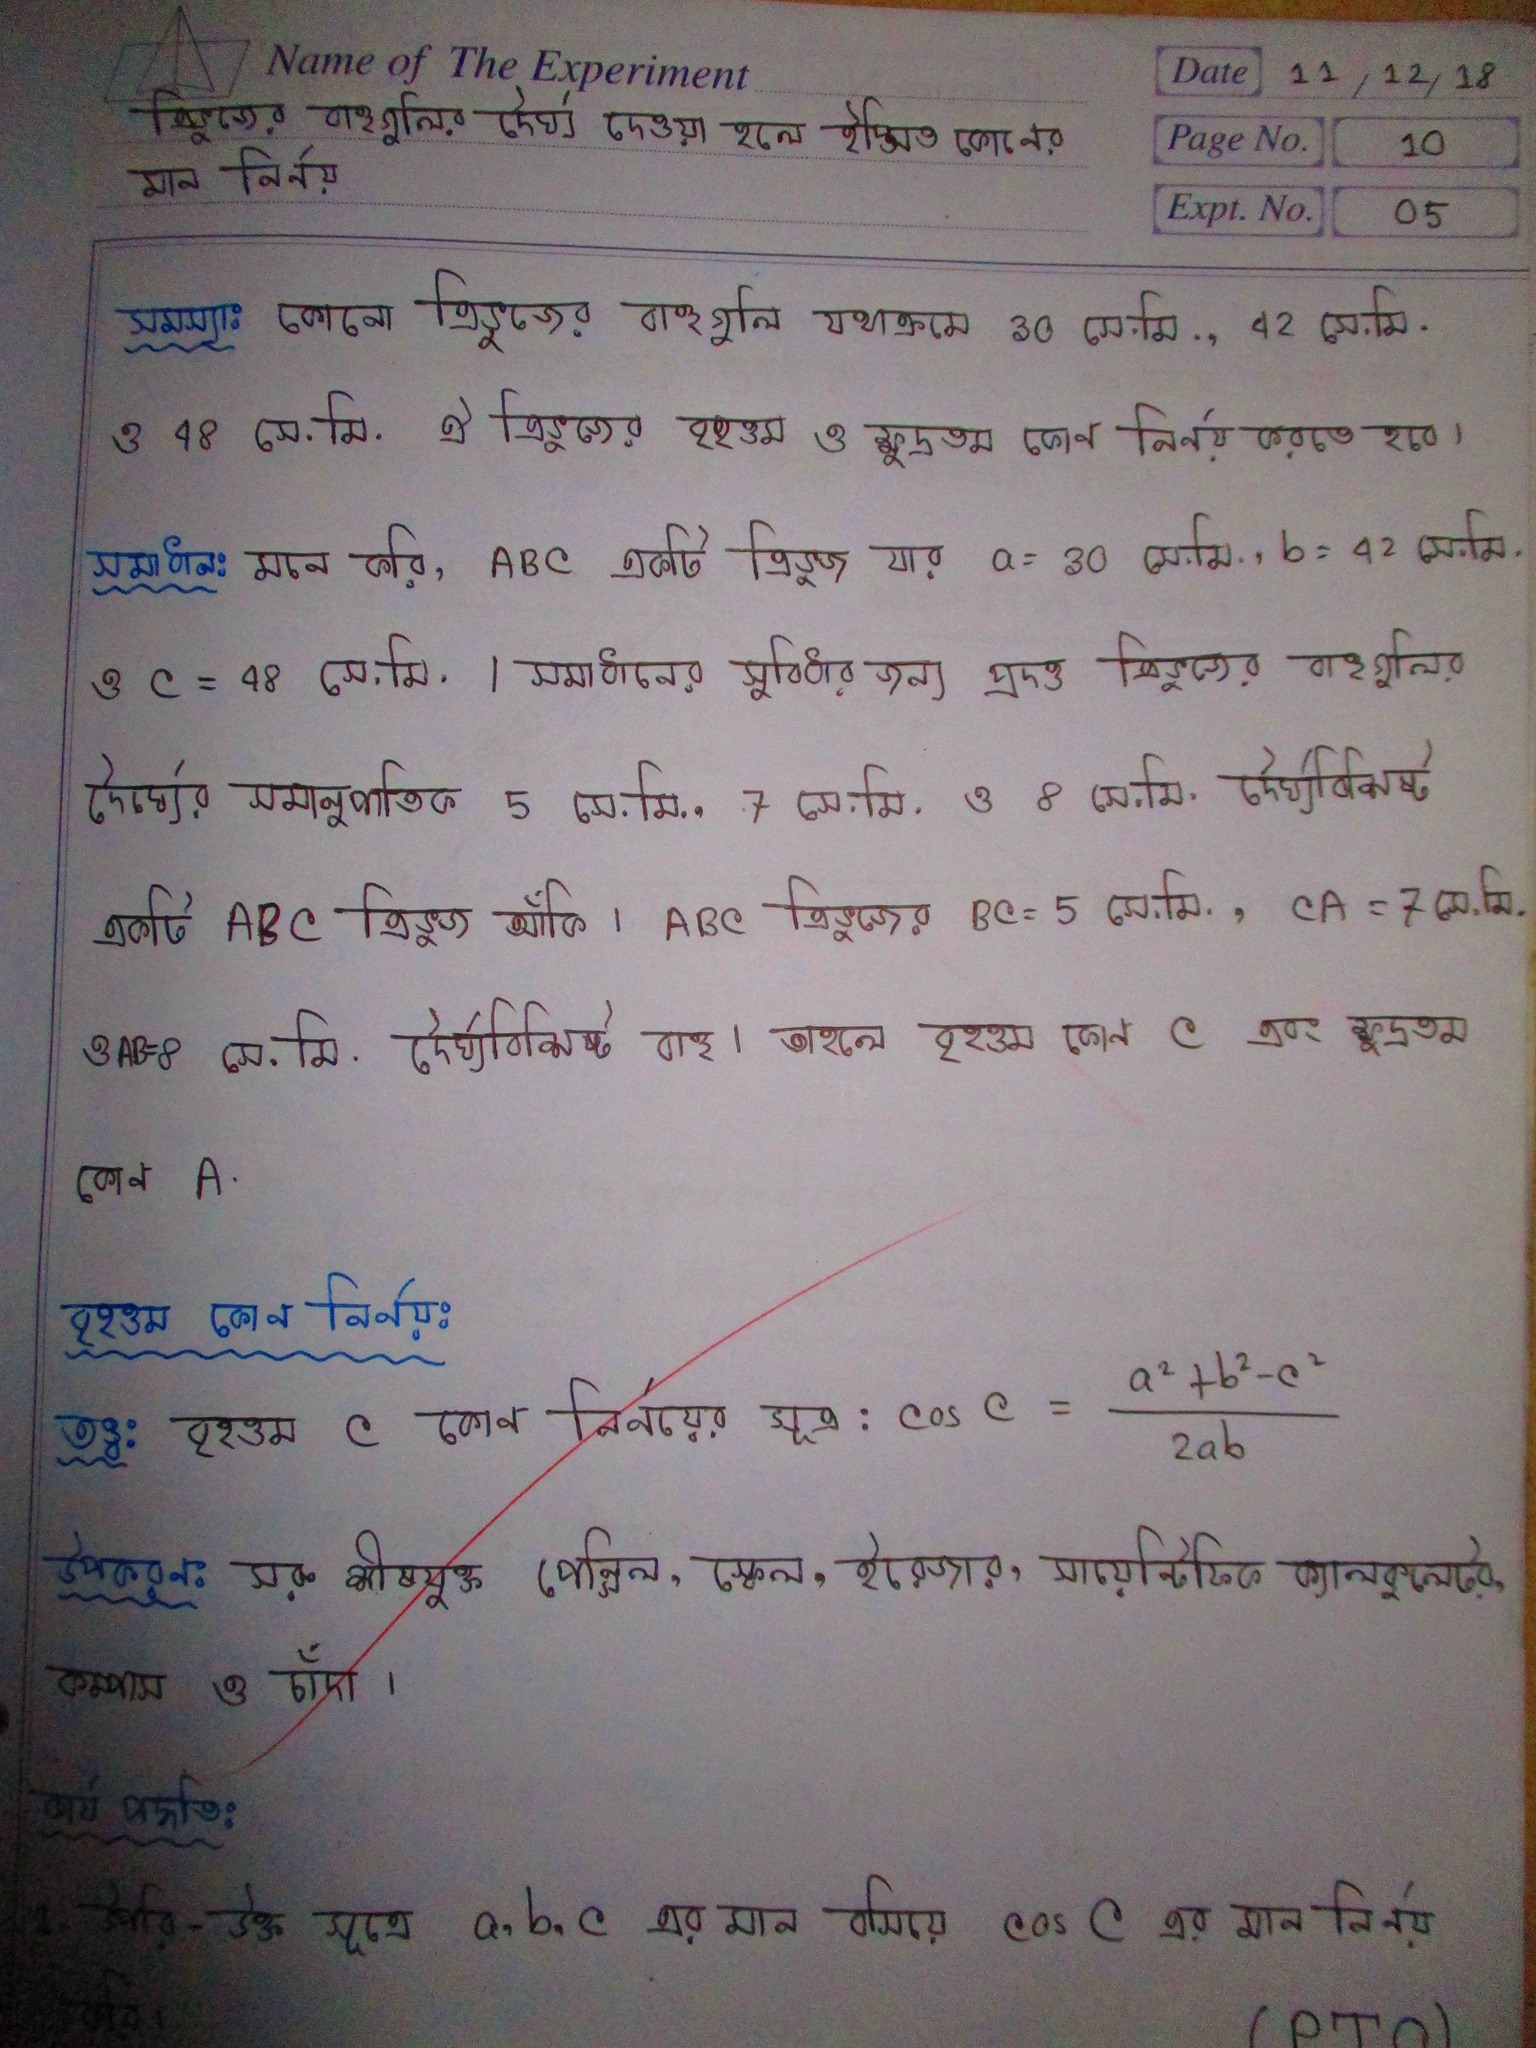 Name of The Experiment
Date 11/12/18
ত্রিভুজের বাহুগুলির দৈর্ঘ্য দেওয়া হলে ইপ্সিত কোনের
Page No. 10
মান নির্নয়
Expt. No. 05
সমস্যাঃ কোনো ত্রিভুজের বাহুগুলি যথাক্রমে 30 সে.মি., 42 সে.মি.
ও 48 সে.মি. ঐ ত্রিভুজের বৃহত্তম ও ক্ষুদ্রতম কোন নির্নয় করতে হবে।
সমাধানঃ মনে করি, ABC একটি ত্রিভুজ যার a= 30 সে.মি., b= 42 সে.মি.
ও c = 48 সে.মি. । সমাধানের সুবিধার জন্য প্রদত্ত ত্রিভুজের বাহুগুলির
দৈর্ঘ্যের সমানুপাতিক 5 সে.মি., 7 সে.মি. ও 8 সে.মি. দৈর্ঘ্যবিশিষ্ট
একটি ABC ত্রিভুজ আঁকি। ABC ত্রিভুজের BC= 5 সে.মি., CA = 7 সে.মি.
ও AB=8 সে.মি. দৈর্ঘ্যবিশিষ্ট বাহু। তাহলে বৃহত্তম কোন C এবং ক্ষুদ্রতম
কোন A.
বৃহত্তম কোন নির্নয়ঃ
তত্ত্বঃ বৃহত্তম C কোন নির্নয়ের সূত্র : cos C = a²+b²-c² / 2ab
উপকরনঃ সরু শীষযুক্ত পেন্সিল, স্কেল, ইরেজার, সায়েন্টিফিক ক্যালকুলেটর,
কম্পাস ও চাঁদা।
কার্য পদ্ধতিঃ
1. উপরি-উক্ত সূত্রে a, b, c এর মান বসিয়ে cos C এর মান নির্নয়
করি।
(PTO)